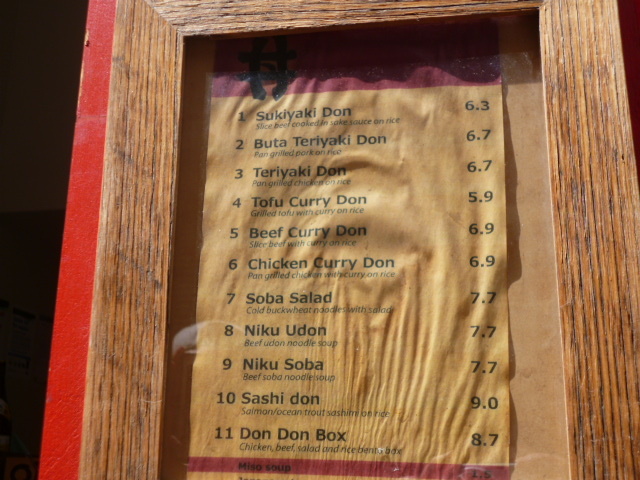 1 Sukiyaki Don 6.3
Slice beef cooked in sake sauce on rice
2 Buta Teriyaki Don 6.7
Pan grilled pork on rice
3 Teriyaki Don 6.7
Pan grilled chicken on rice
4 Tofu Curry Don 5.9
Grilled tofu with curry on rice
5 Beef Curry Don 6.9
Slice beef with curry on rice
6 Chicken Curry Don 6.9
Pan grilled chicken with curry on rice
7 Soba Salad 7.7
Cold buckwheat noodles with salad
8 Niku Udon 7.7
Beef udon noodle soup
9 Niku Soba 7.7
Beef soba noodle soup
10 Sashi don 9.0
Salmon/ocean trout sashimi on rice
11 Don Don Box 8.7
Chicken, beef, salad and rice bento box
Miso soup